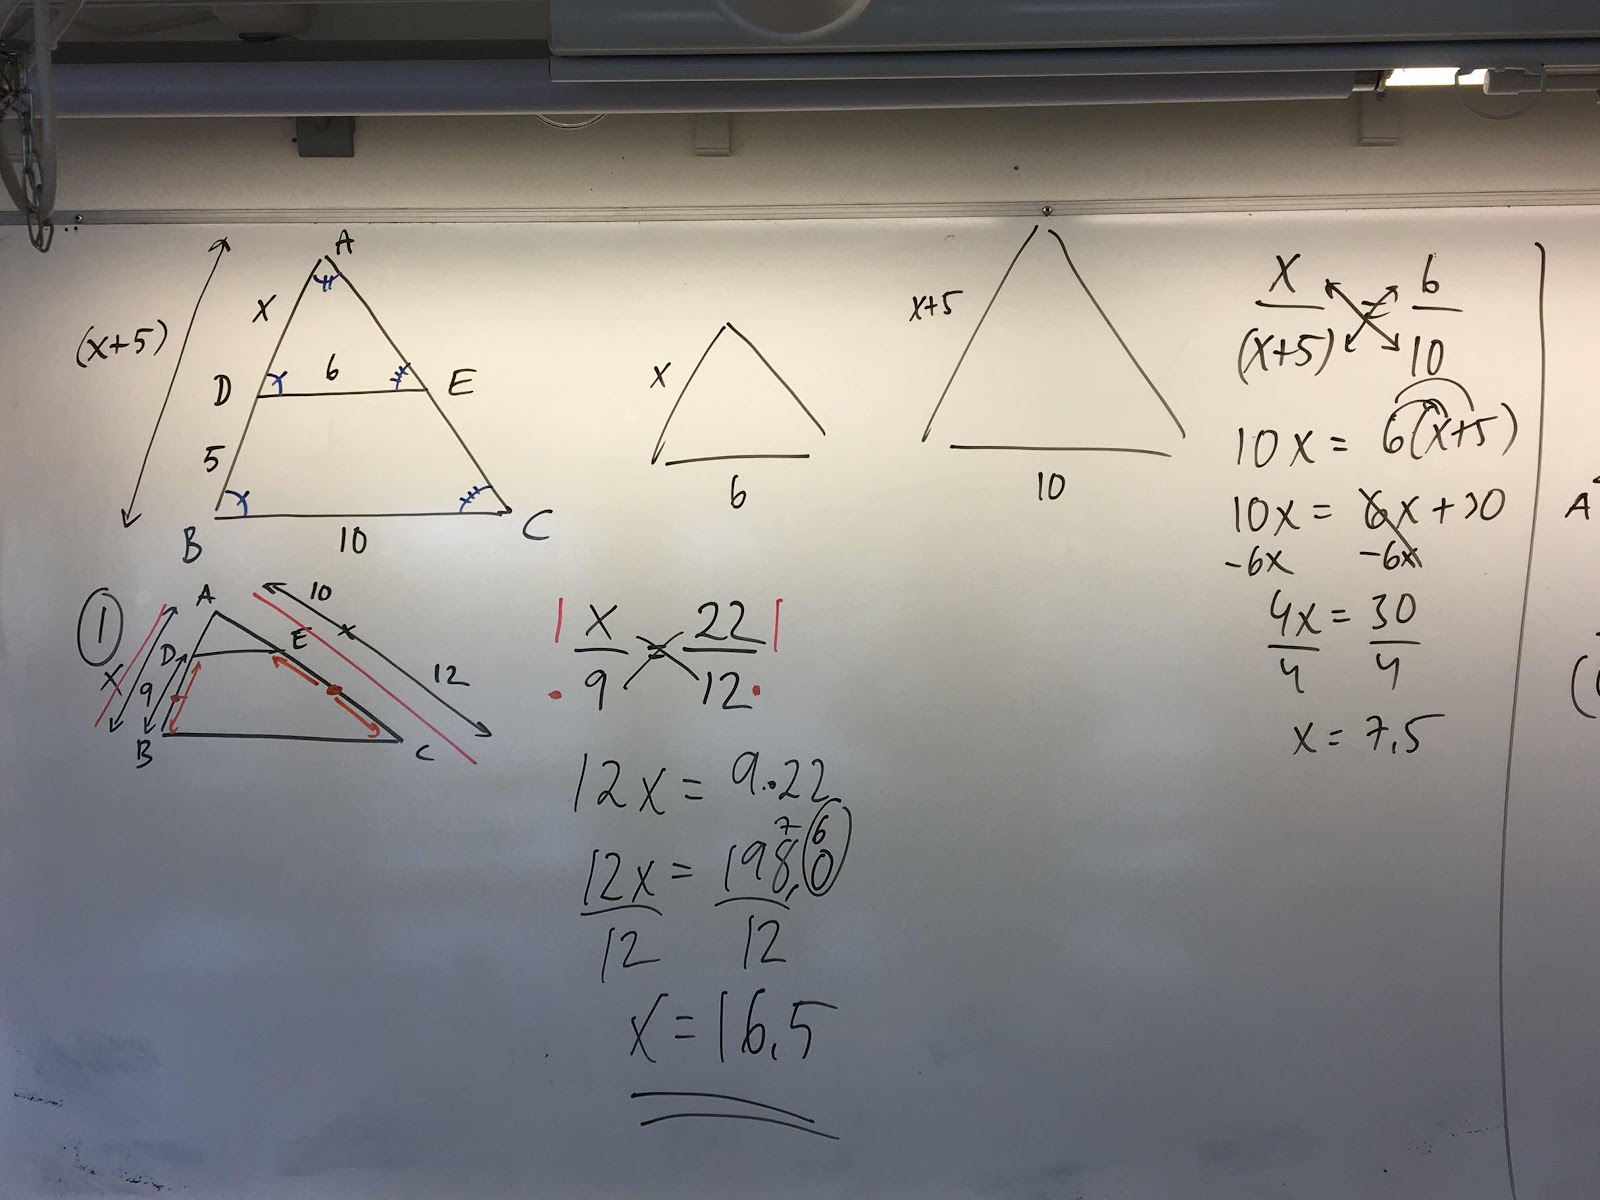 A
x
(x+5)
D 6 E
5
B 10 C
x
6
x+5
10
x/(x+5) = 6/10
10x = 6(x+5)
10x = 6x + 30
-6x -6x
4x/4 = 30/4
x = 7,5
1
A
10
D E
x
x
9
12
B C
x/9 = 22/12
12x = 9·22
7 6
12x/12 = 198,0/12
x = 16,5
A
(